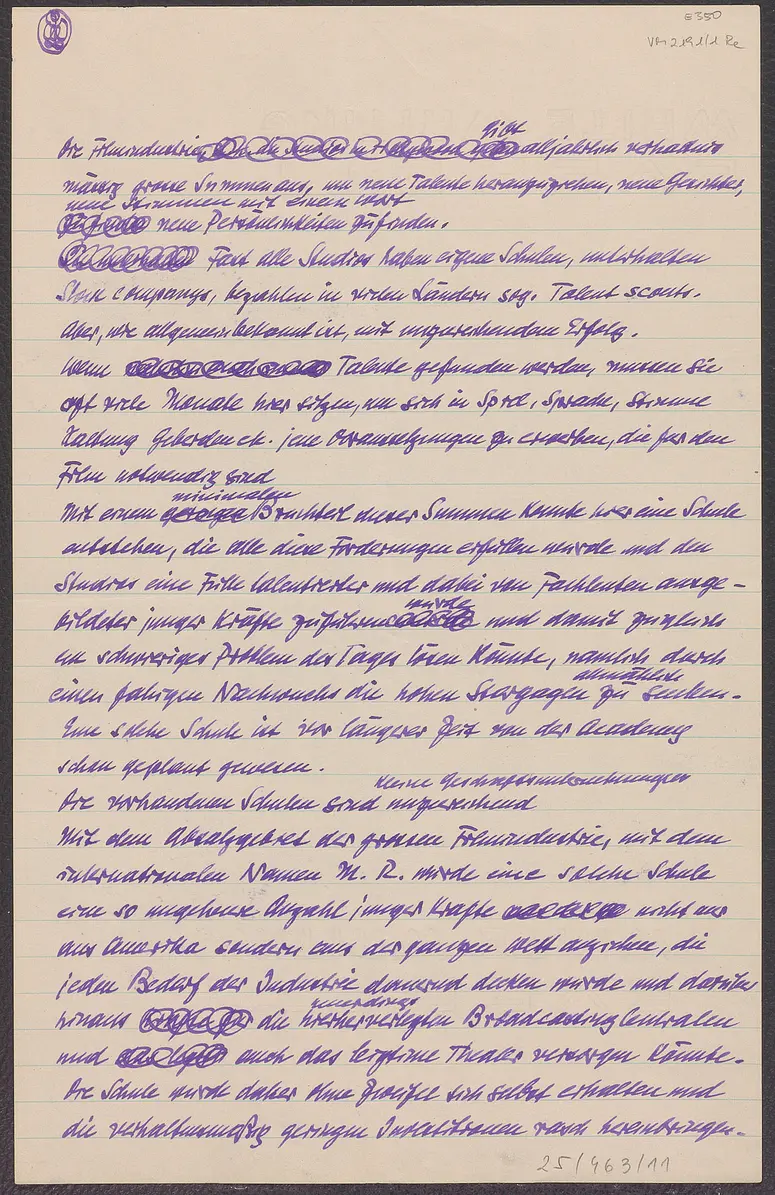 E350
VM 2191/1 Re
gibt
Die Filmindustrie, alljährlich verhältnis
mässig grosse Summen aus, um neue Talente heranzuziehen, neue Gesichter,
neue Stimmen mit einem Wort
neue Persönlichkeiten zu finden.
Fast alle Studios haben eigene Schulen, unterhalten
Stock companys, bezahlen in vielen Ländern sog. Talent scouts.
Aber, wie allgemein bekannt ist, mit unzureichendem Erfolg.
Wenn Talente gefunden werden, müssen sie
oft viele Monate hier sitzen, um sich in Spiel, Sprache, Stimme
Haltung Geberden etc. jene Voraussetzungen zu erwerben, die für den
Film notwendig sind
minimalen
Mit einem Bruchteil dieser Summen könnte hier eine Schule
entstehen, die alle diese Forderungen erfüllen würde und den
Studios eine Fülle talentierter und dabei von Fachleuten ausge-
würde
bildeter junger Kräfte zuführen und damit zugleich
ein schwieriges Problem des Tages lösen könnte, nämlich durch
allmählich
einen fähigen Nachwuchs die hohen Stargagen zu senken.
Eine solche Schule ist vor längerer Zeit von der Academy
schon geplant gewesen.
kleine Geschäftsunternehmungen
Die vorhandenen Schulen sind unzureichend
Mit dem Absatzgebiet der grossen Filmindustrie, mit dem
internationalen Namen M. R. würde eine solche Schule
eine so ungeheure Anzahl junger Kräfte nicht nur
aus Amerika sondern aus der ganzen Welt anziehen, die
jeden Bedarf der Industrie dauernd decken würde und darüber
neuerdings
hinaus die hierherverlegten Broadcasting Centralen
und auch das legitime Theater versorgen könnte.
Die Schule würde daher ohne Zweifel sich selbst erhalten und
die verhältnismäßig geringen Investitionen rasch hereinbringen.
25/463/11